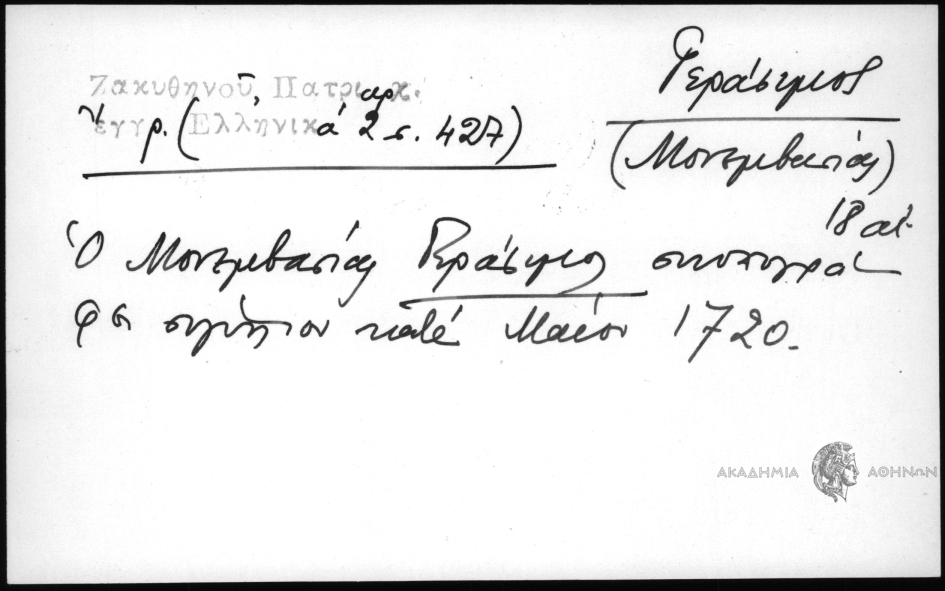 Ζακυθηνοῦ, Πατριαρχ.
ἔγγρ. (Ἑλληνικά 2 σ. 427)
Γεράσιμος
(Μονεμβασίας)
18 αἰ.
Ὁ Μονεμβασίας Γεράσιμος συνυπογρά-
φει σιγίλλιον κατά Μαίον 1720.
ΑΚΑΔΗΜΙΑ ΑΘΗΝΩΝ